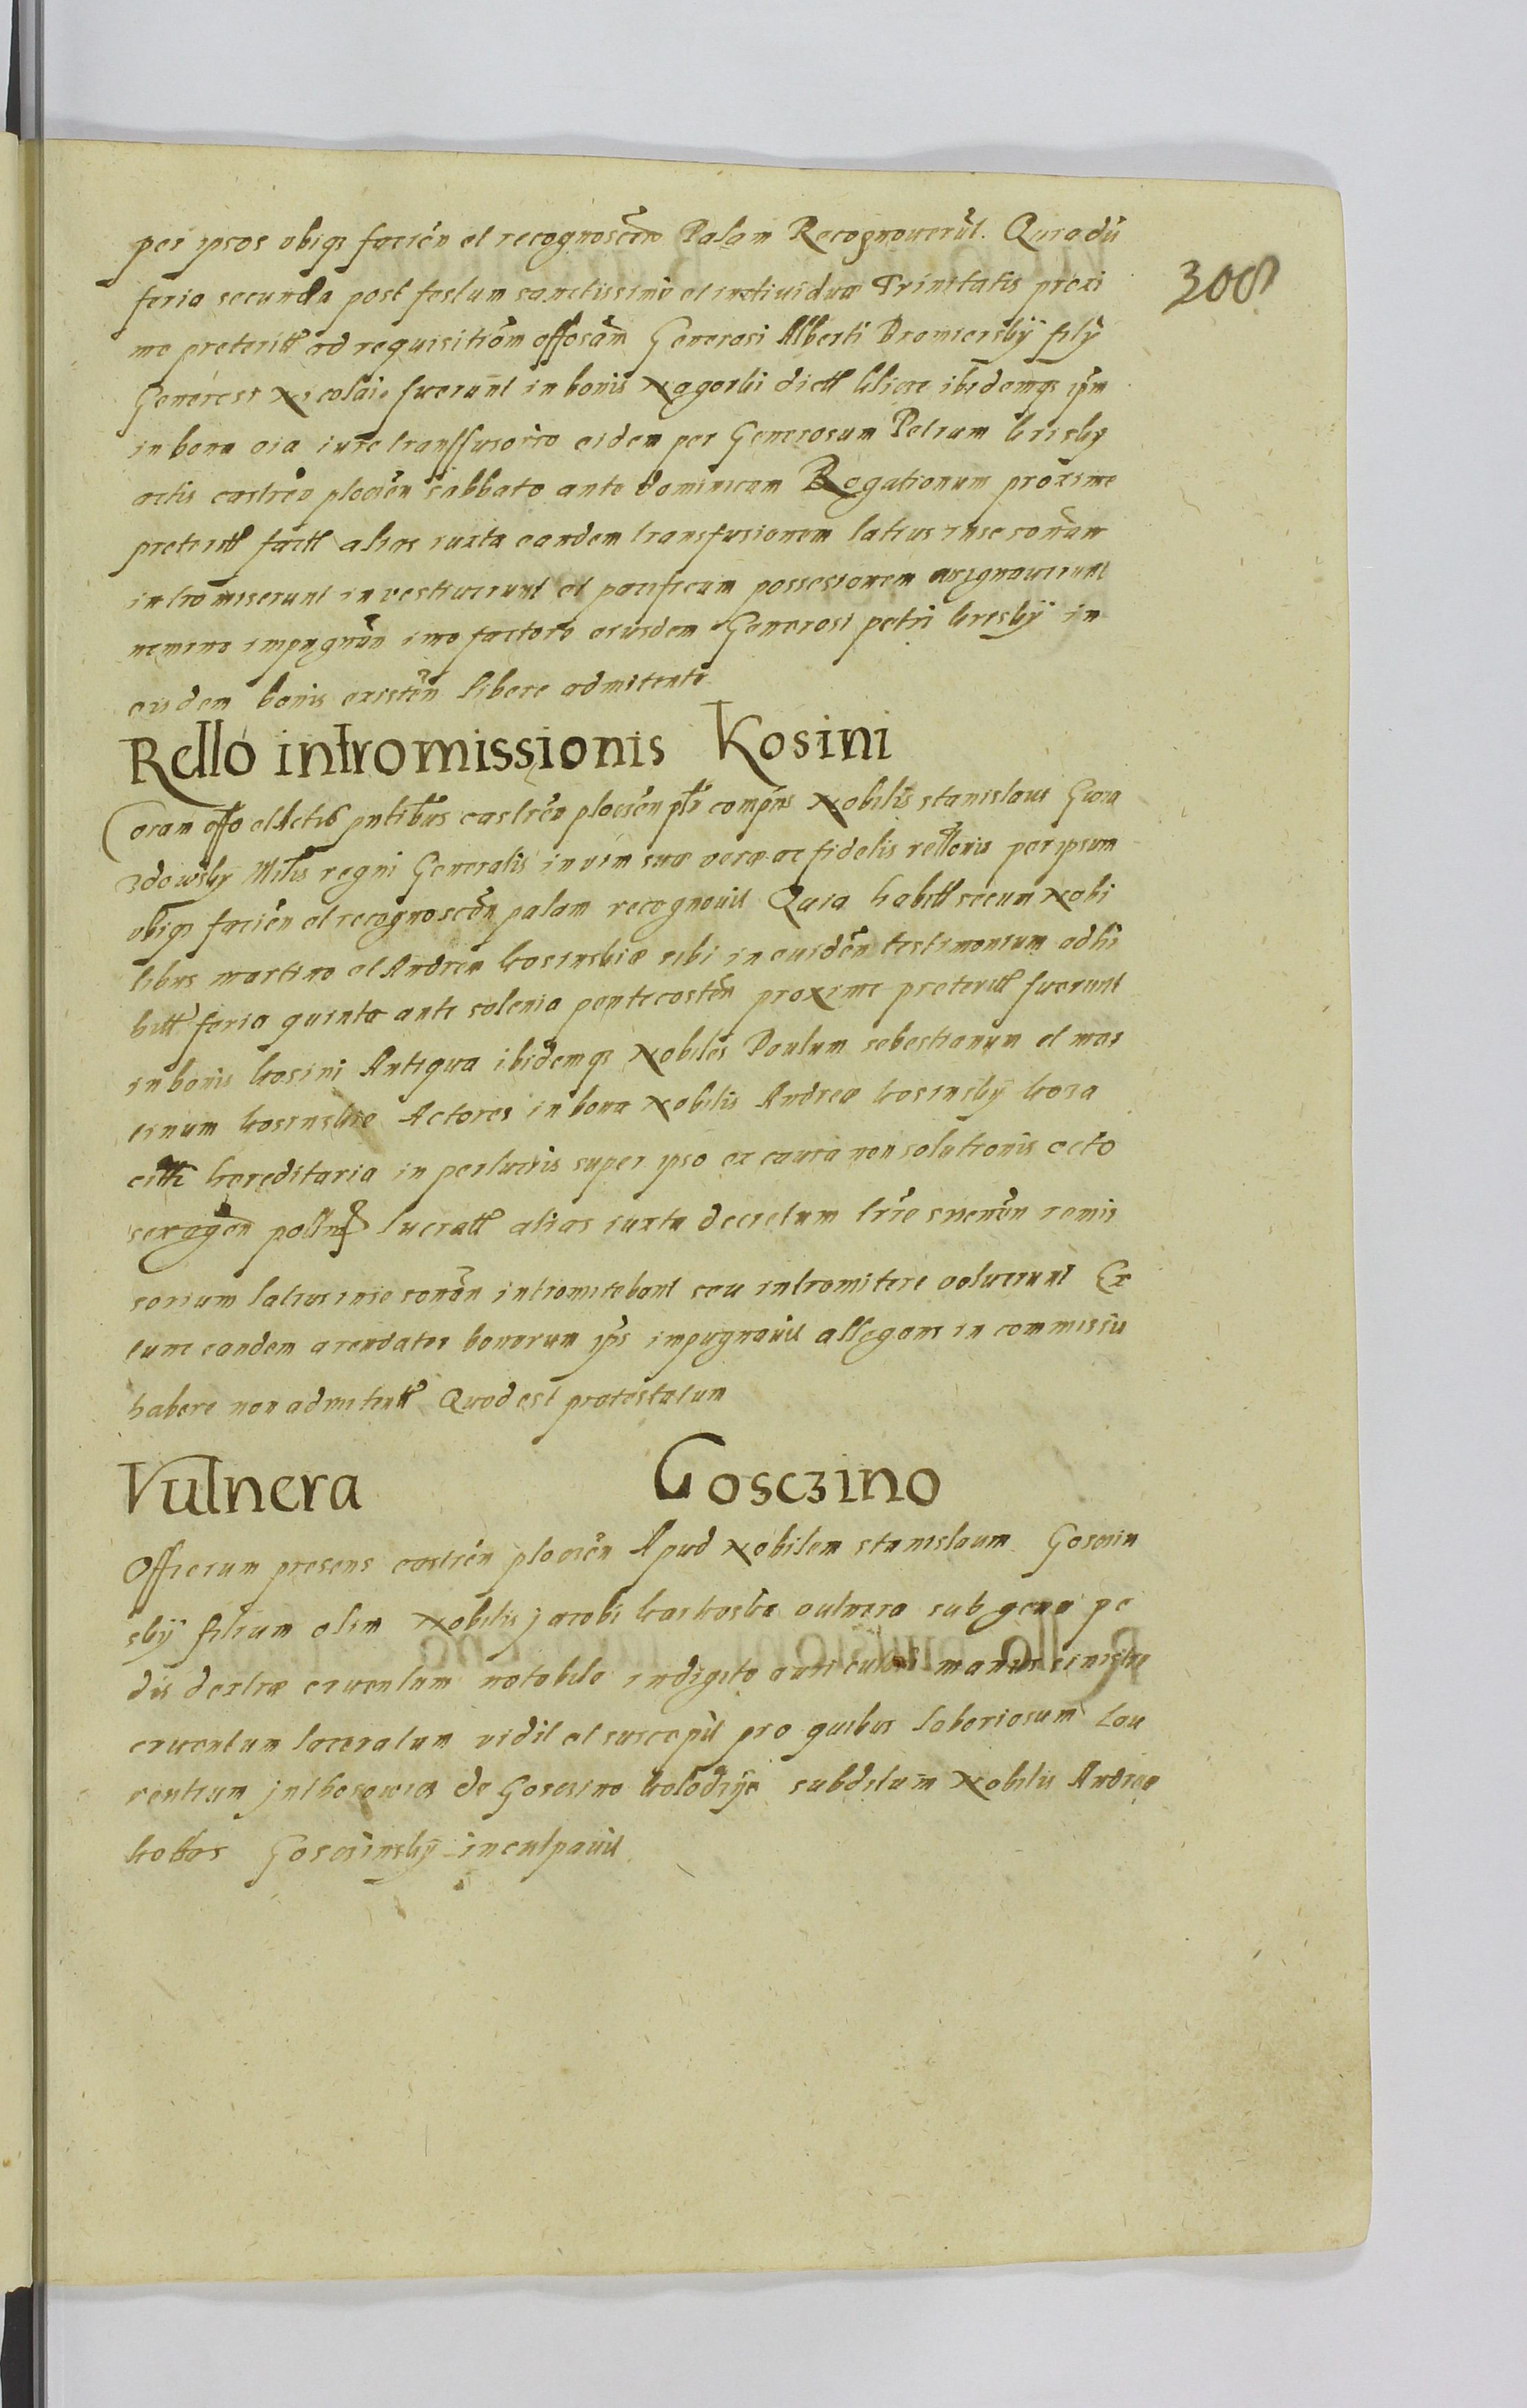 per ipsos obiqs facien et recognoscen Palam Recognouerut. Quia dũ
300
feria secunda post festum sanctissime et indiuiduæ Trinitatis proxi
me preteritt ad requisitiõm Generosi Alberti Dromiersky filÿ
Generosi Nicolai fuerunt in bonis Nagorki dictt ibidemqs ipm
in bona oia iure transfusorio eidem per Generosum Petrum
actis castren plocien sabbato ante dominicam Rogationum proxime
preteritt factt alias iuxta eandem transfusionem latius inse sonan
intromiserunt inuestiuerunt et pacificam possesionem assignauerunt
nemine impugnan imo factore eiusdem Generosi petri in
eisdem bonis existen libere admitente
Rello intromissionis Kosini
Coram offo et Actis pntibus castren plocien plr compns Nobilis stanislaus Gwia
zdowsky Mitis regni Generalis in vim suæ veræ ac fidelis rellonis per ipsum
obiqs facien et recognoscen palam recognouit Quia habitt secum Nobi
libus martino et Andrea kosinskie sibi in euiden testimonium adhi
bitt feria quinta ante solenia pentecosten proxime preteritt fuerunt
in bonis kosini Antiqua ibidemqs Nobiles Paulum sebestianum et mar
cinum kosinskie Actores in bona Nobilis Andreæ kosinsky koza
citti hereditaria in perlucris super ipso ex causa non solutionis octo
sexagen polln lucratt alias iuxta decretum trre remis
sorium latius inse sonan intromitebant seu intromitere voluerunt Ex
tunc eandem arendator bonorum ips impugnauit allegans in commissu
habere non admitentt Quod est protestatum
Vulnera Gosczino
Officium presens castren plocien Apud Nobilem stanislaum Goscin
sky filium olim Nobilis jacobi vulnera sub genu pe
dis dextræ cruentum notabile in digito auriculari manus sinistre
cruentum laceratum vidit et suscepit pro quibus laboriosum Lau
rentium de Goscino kolodzije subditum Nobilis Andreæ
Goscinsky inculpauit